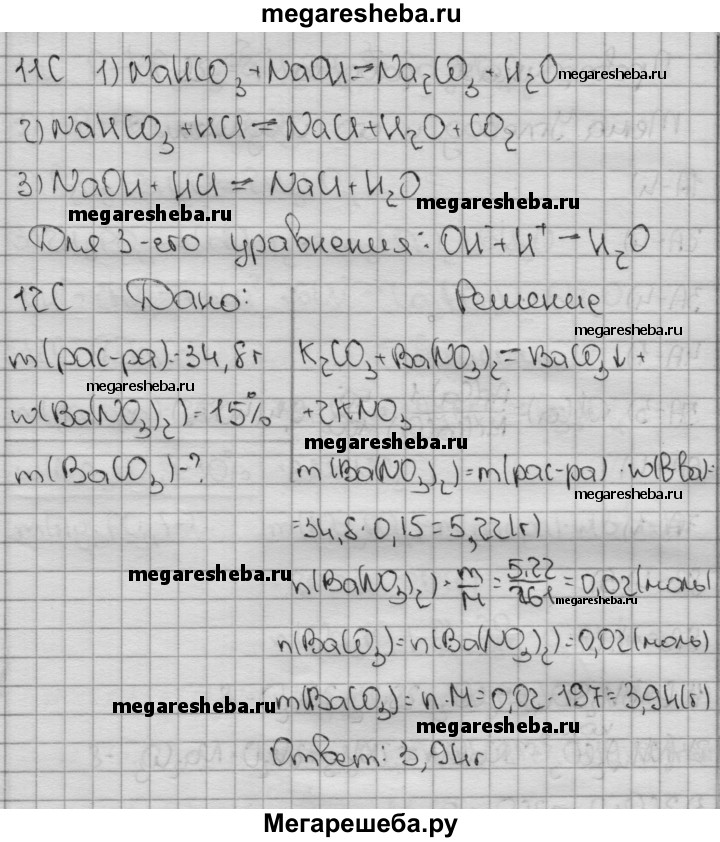 megaresheba.ru
11C 1) NaHCO3 + NaOH = Na2CO3 + H2O megaresheba.ru
2) NaHCO3 + HCl = NaCl + H2O + CO2
3) NaOH + HCl = NaCl + H2O
megaresheba.ru megaresheba.ru
Для 3-его уравнения: OH⁻ + H⁺ = H2O
12C Дано: Решение
megaresheba.ru
m(рас-ра) = 34,8 г K2CO3 + Ba(NO3)2 = BaCO3↓ +
megaresheba.ru
w(Ba(NO3)2) = 15% +2KNO3
megaresheba.ru
m(BaCO3) - ? m(Ba(NO3)2) = m(рас-ра) · w(в-ва) =
megaresheba.ru
= 34,8 · 0,15 = 5,22 (г)
megaresheba.ru
n(Ba(NO3)2) = m/M = 5,22/261 = 0,02 (моль)
megaresheba.ru
n(BaCO3) = n(Ba(NO3)2) = 0,02 (моль)
m(BaCO3) = n · M = 0,02 · 197 = 3,94 (г)
megaresheba.ru
megaresheba.ru
Ответ: 3,94г
Мегарешеба.ру